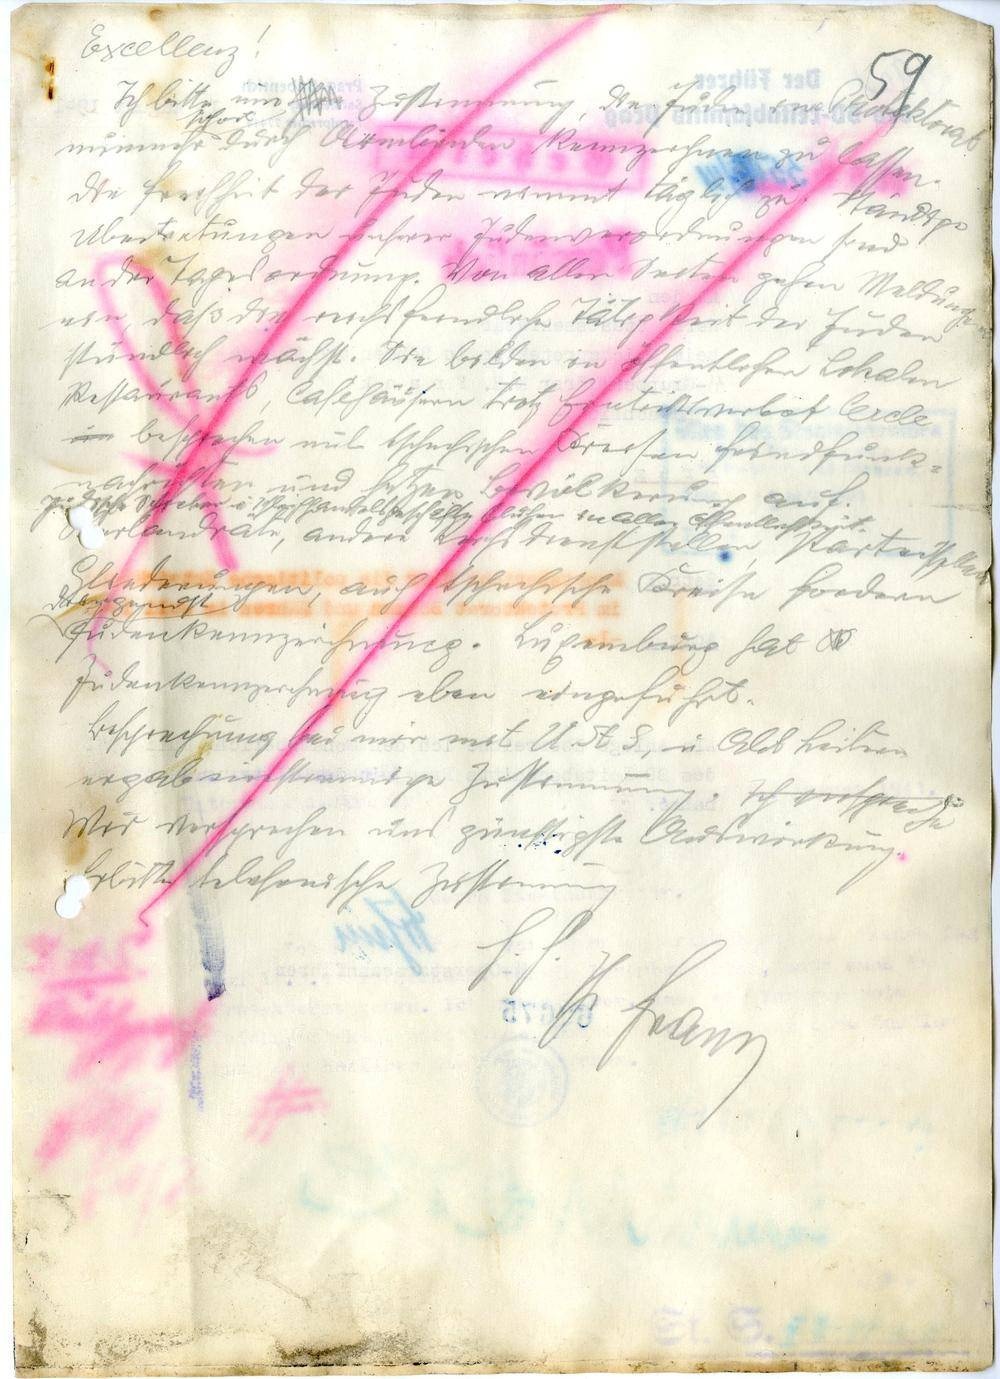 59
Excellenz!
Ich bitte um Zustimmung, die Juden im Protektorat
sofort
nunmehr durch Armbinden kennzeichnen zu lassen.
Die Frechheit der Juden nimmt täglich zu.
Übertretungen unserer Judenverordnungen sind
an der Tagesordnung. Von allen Seiten gehen Meldungen
ein, daß die reichsfeindliche Tätigkeit der Juden
stündlich wächst. Sie bilden in öffentlichen Lokalen
Restaurants, Caféhäusern trotz Eintrittsverbot Cercle
besprechen mit tschechischen Kreisen Feindfunk=
nachrichten und hetzen Bevölkerung auf.
jüdische Schieber
Oberlandräte, andere Reichsdienststellen, Parteistellen
Gliederungen, auch tschechische Kreise fordern
dringendst
Judenkennzeichnung. Luxemburg hat
Judenkennzeichnung eben eingeführt.
Besprechung bei mir mit U.St.S. u Abt.leitern
ergab einstimmige Zustimmung. Ich verspreche
Wir versprechen uns günstigste Auswirkung.
Erbitte telefonische Zustimmung
H. H.
Frank